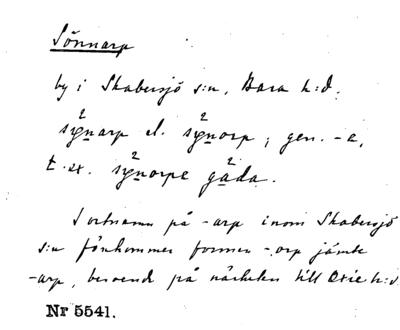 Sönnarp
by i Skabersjö s:n, Bara h:d.
sy̱narp el. sy̱norp; gen. -a,
t. ex. sy̱norpa ga̱da.
I ortnamn på -arp inom Skabersjö
s:n förekommer formen -orp jämte
-arp, beroende på närheten till Oxie h:d.
Nr 5541.